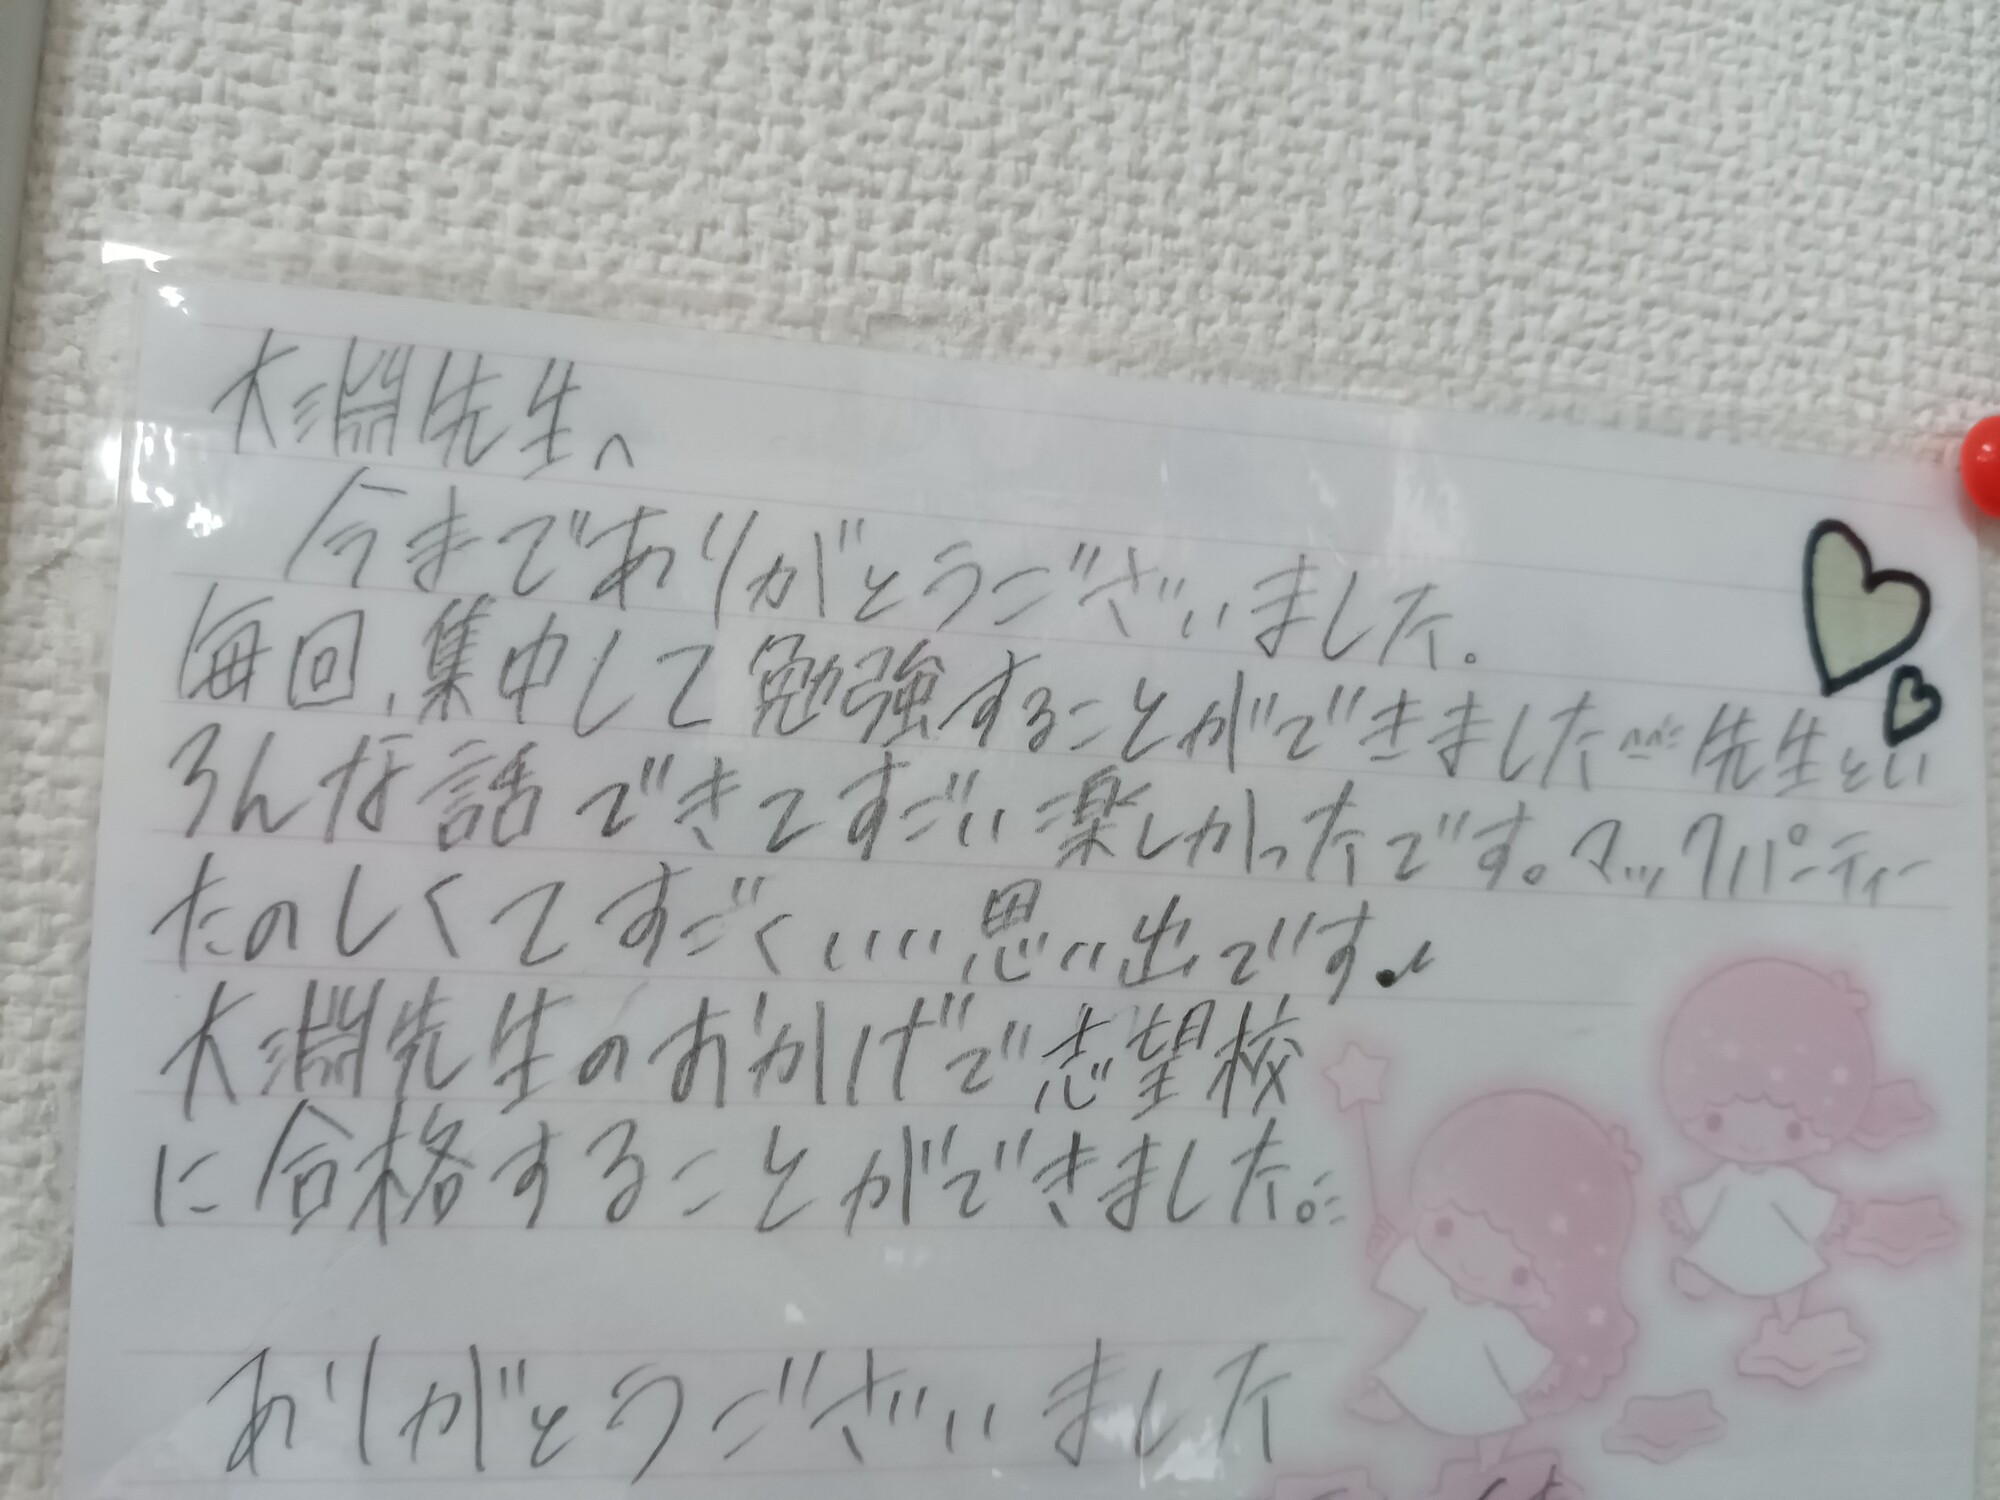 大淵先生へ
今までありがとうございました。
毎回、集中して勉強することができました^^ 先生とい
ろんな話できてすごい楽しかったです。マックパーティー
たのしくてすごくいい思い出です♪
大淵先生のおかげで志望校
に合格することができました。
ありがとうございました